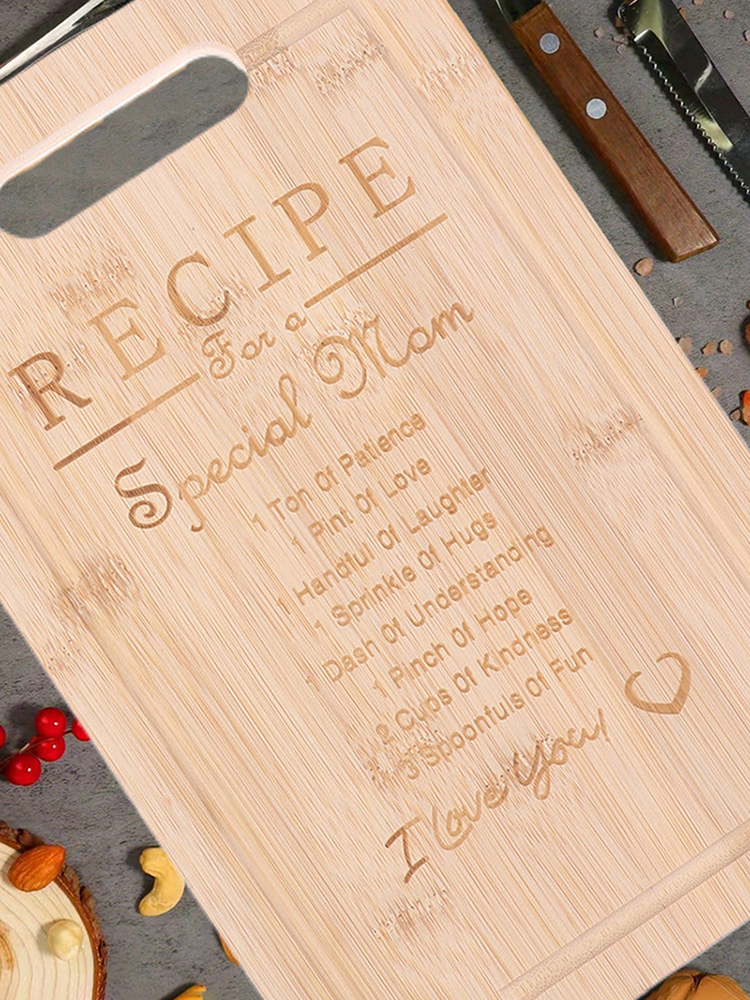 RECIPE
For a
Special Mom
1 Ton Of Patience
1 Pint Of Love
1 Handful Of Laughter
1 Sprinkle Of Hugs
1 Dash Of Understanding
1 Pinch Of Hope
2 Cups Of Kindness
3 Spoonfuls Of Fun
I love You!